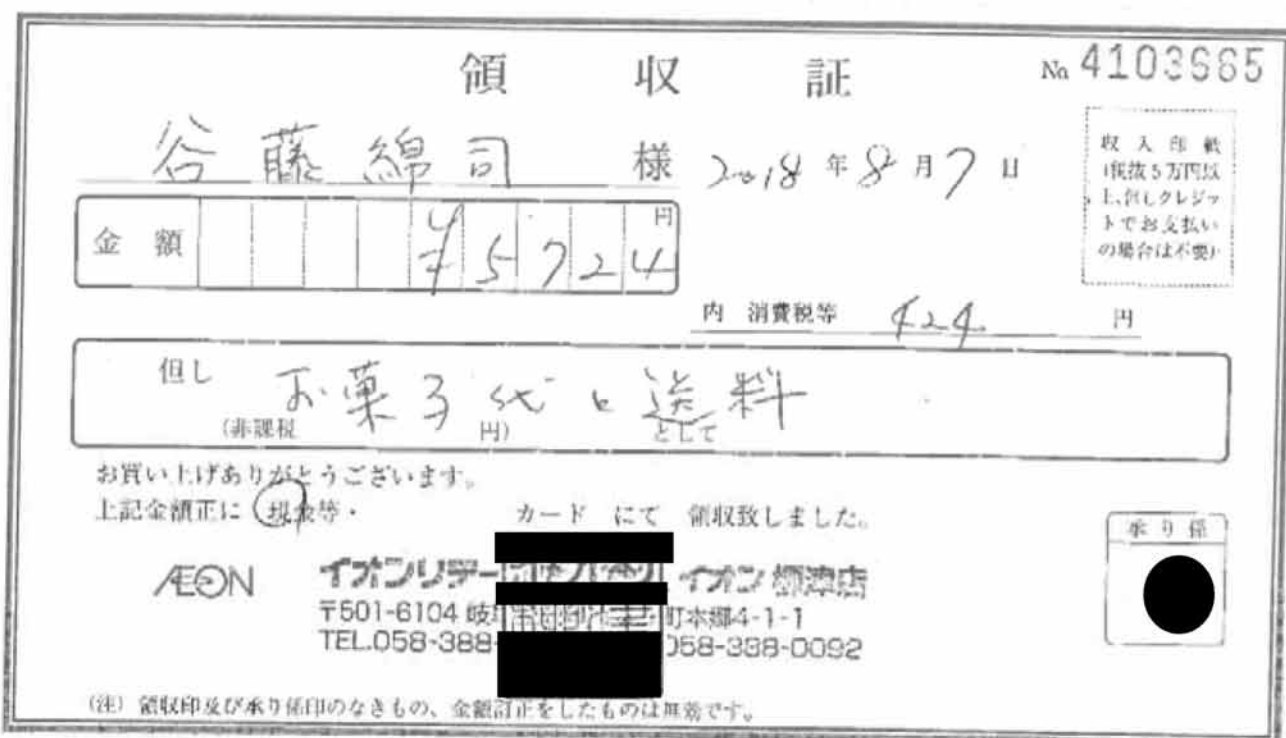 領収証
No 4103665
谷藤綿司 様 2018年8月7日
収入印紙
(税抜5万円以
上、但しクレジッ
トでお支払い
の場合は不要)
金額 ¥5724円
内 消費税等 424 円
但し お菓子代と送料
(非課税 円) として
お買い上げありがとうございます。
上記金額正に 現金等・ カード にて 領収致しました。
承り係
ÆON イオンリテー イオン 柳津店
〒501-6104 岐 町本郷4-1-1
TEL.058-388- 058-388-0092
(注) 領収印及び承り係印のなきもの、金額訂正をしたものは無効です。